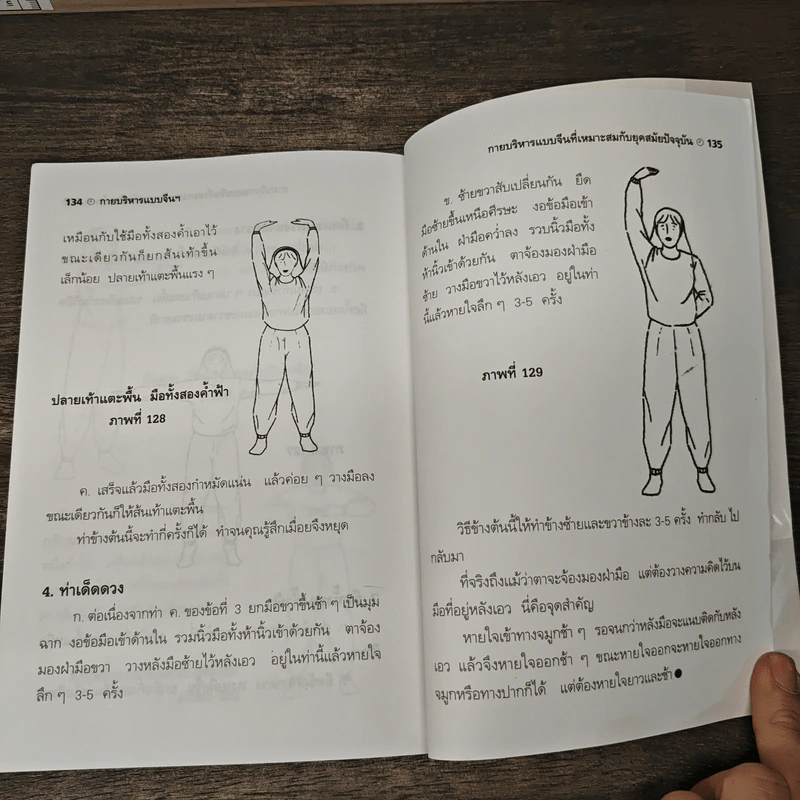 134 กายบริหารแบบจีนฯ
เหมือนกับใช้มือทั้งสองค้ำเอาไว้
ขณะเดียวกันก็ยกส้นเท้าขึ้น
เล็กน้อย ปลายเท้าแตะพื้นแรง ๆ
ปลายเท้าแตะพื้น มือทั้งสองค้ำฟ้า
ภาพที่ 128
ค. เสร็จแล้วมือทั้งสองกำหมัดแน่น แล้วค่อย ๆ วางมือลง
ขณะเดียวกันก็ให้ส้นเท้าแตะพื้น
ท่าข้างต้นนี้จะทำกี่ครั้งก็ได้ ทำจนคุณรู้สึกเมื่อยจึงหยุด
4. ท่าเด็ดดวง
ก. ต่อเนื่องจากท่า ค. ของข้อที่ 3 ยกมือขวาขึ้นช้า ๆ เป็นมุม
ฉาก งอข้อมือเข้าด้านใน รวมนิ้วมือทั้งห้านิ้วเข้าด้วยกัน ตาจ้อง
มองฝ่ามือขวา วางหลังมือซ้ายไว้หลังเอว อยู่ในท่านี้แล้วหายใจ
ลึก ๆ 3-5 ครั้ง
กายบริหารแบบจีนที่เหมาะสมกับยุคสมัยปัจจุบัน 135
ข. ซ้ายขวาสับเปลี่ยนกัน ยืด
มือซ้ายขึ้นเหนือศีรษะ งอข้อมือเข้า
ด้านใน ฝ่ามือคว่ำลง รวบนิ้วมือทั้ง
ห้านิ้วเข้าด้วยกัน ตาจ้องมองฝ่ามือ
ซ้าย วางมือขวาไว้หลังเอว อยู่ในท่า
นี้แล้วหายใจลึก ๆ 3-5 ครั้ง
ภาพที่ 129
วิธีข้างต้นนี้ให้ทำข้างซ้ายและขวาข้างละ 3-5 ครั้ง ทำกลับ ไป
กลับมา
ที่จริงถึงแม้ว่าตาจะจ้องมองฝ่ามือ แต่ต้องวางความคิดไว้บน
มือที่อยู่หลังเอว นี่คือจุดสำคัญ
หายใจเข้าทางจมูกช้า ๆ รอจนกว่าหลังมือจะแนบติดกับหลัง
เอว แล้วจึงหายใจออกช้า ๆ ขณะหายใจออกจะหายใจออกทาง
จมูกหรือทางปากก็ได้ แต่ต้องหายใจยาวและช้า●